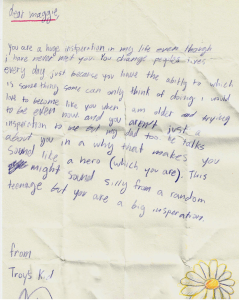 dear maggie
you are a huge insperation in my life even though
i have never met you. You change peoples lives
every day just because you have the ability to which
is something some can only think of doing. i would
love to become like you when i am older and
be even more and you aren't just a
insperation to me but my dad too he talks
about you in a why that makes you
sound like a hero (which you are). This
might sound silly from a random
teenage but you are a big insperation.
from
Troy's kid